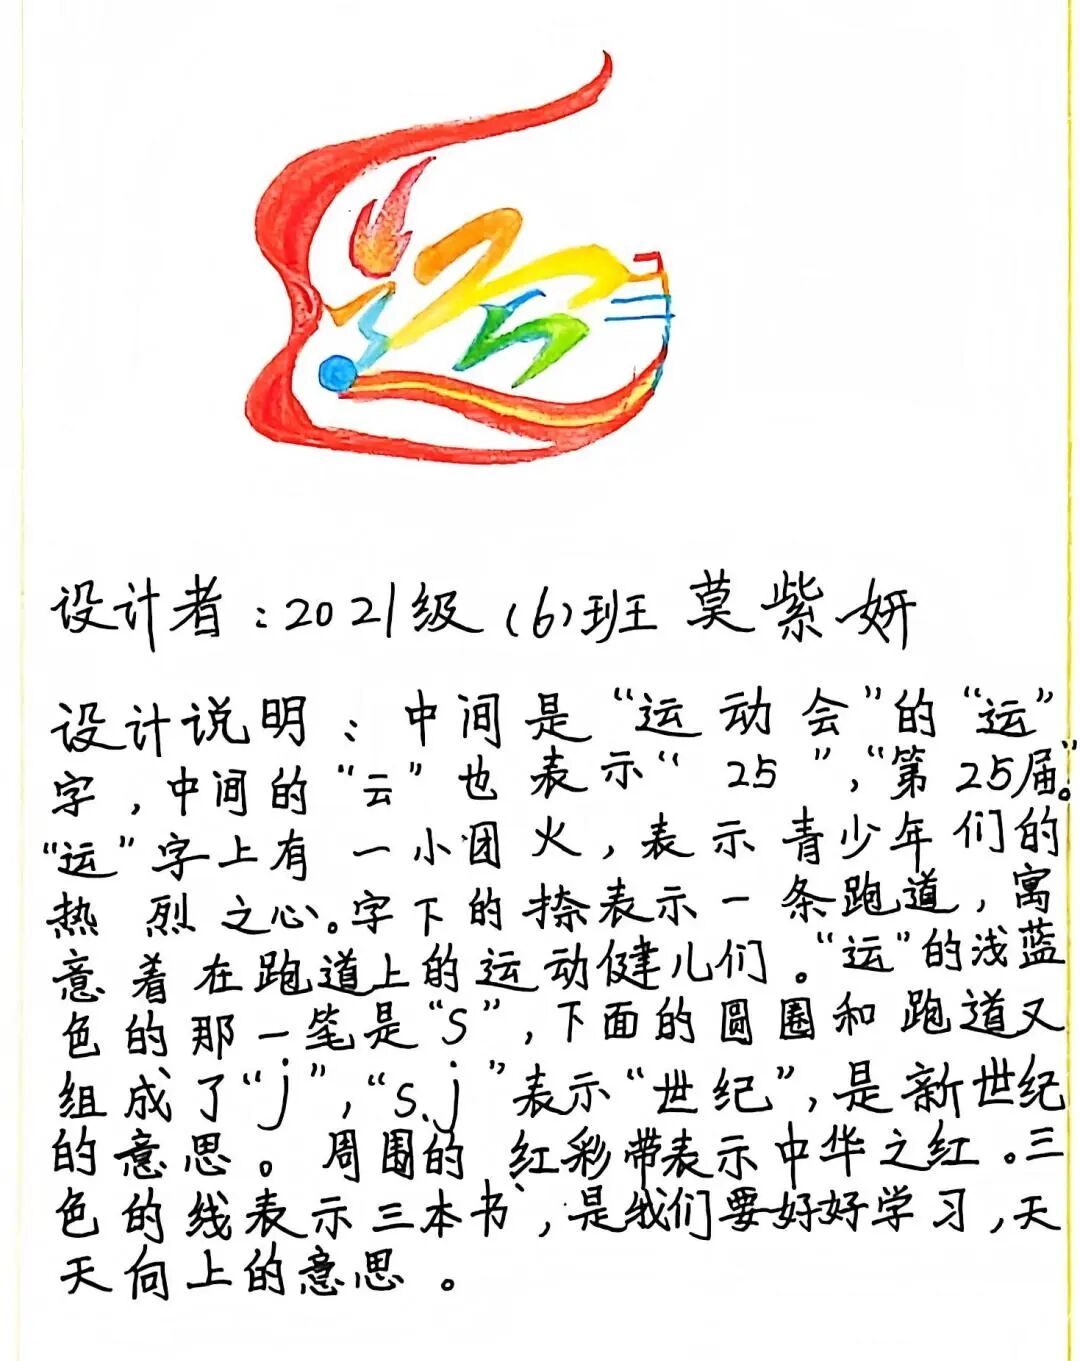 设计者：2021级（6）班 莫紫妍
设计说明：中间是“运动会”的“运”
字，中间的“云”也表示“25”，“第25届。”
“运”字上有一小团火，表示青少年们的
热烈之心。字下的捺表示一条跑道，寓
意着在跑道上的运动健儿们。“运”的浅蓝
色的那一笔是“S”，下面的圆圈和跑道又
组成了“j”，“s.j”表示“世纪”，是新世纪
的意思。周围的红彩带表示中华之红。三
色的线表示三本书，是我们要好好学习，天
天向上的意思。